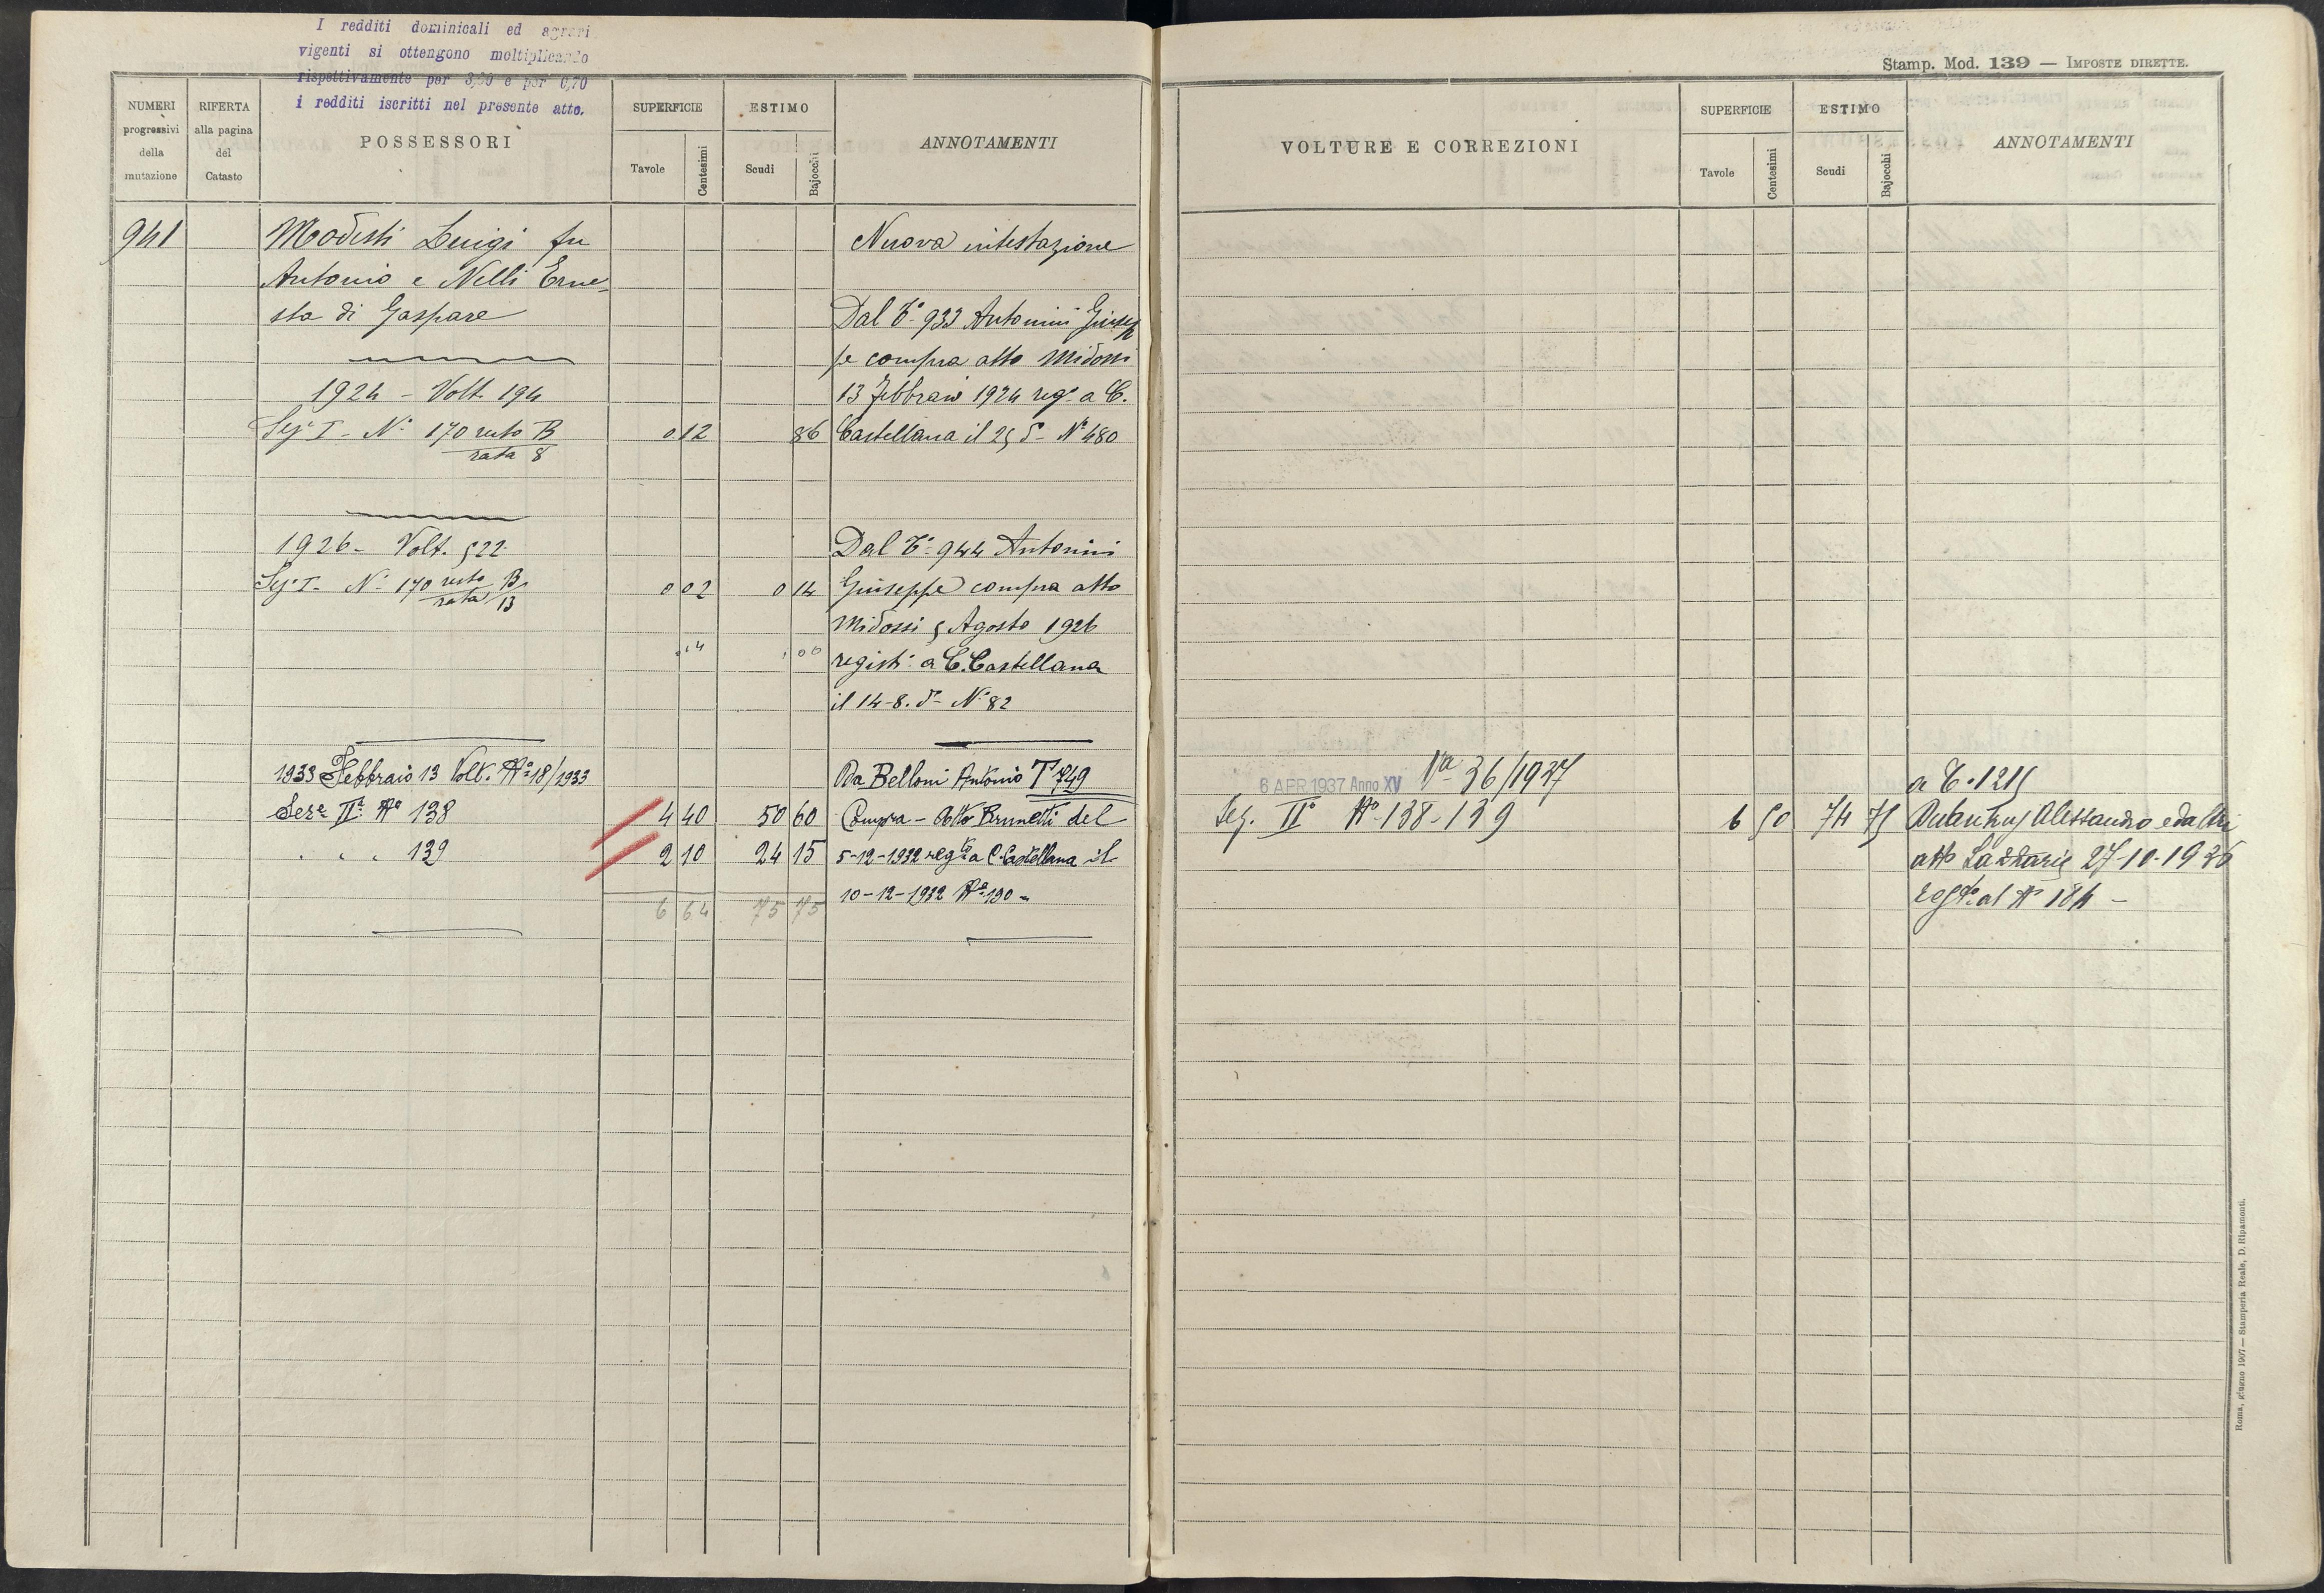 I redditi dominicali ed agrari
vigenti si ottengono moltiplicando
rispettivamente per 3,60 e per 6,70
i redditi iscritti nel presente atto.
NUMERI
progressivi
della
mutazione
RIFERTA
alla pagina
del
Catasto
POSSESSORI
SUPERFICIE
Tavole
Centesimi
ESTIMO
Scudi
Bajocchi
ANNOTAMENTI
941
Modesti Luigi fu
Antonio e Nelli Erne-
sta di Gaspare
1924 - Volt. 194
Sez. I - N. 170 resto B
rata 8
0 12
86
Nuova intestazione
Dal T. 933 Antonini Giusep
pe compra atto Midossi
13 febbraio 1924 reg. a C.
Castellana il 25 d. N. 480
1926 - Volt. 522
Sez. I - N. 170 resto B
rata 13
0 02
0 14
14
1 00
Dal T. 944 Antonini
Giuseppe compra atto
Midossi 5 Agosto 1926
regist. a C. Castellana
il 14-8. d. N. 82
1933 Febbraio 13 Volt. N. 18/1933
Sez. II N. 138
4 40
50 60
" " " 139
2 10
24 15
6 64
75 75
Da Belloni Antonio T. 749
Compra - Atto Brunetti del
5-12-1932 reg. a C. Castellana il
10-12-1932 N. 190 -
Stamp. Mod. 139 — IMPOSTE DIRETTE.
VOLTURE E CORREZIONI
SUPERFICIE
Tavole
Centesimi
ESTIMO
Scudi
Bajocchi
ANNOTAMENTI
6 APR. 1937 Anno XV
Va 36/1937
Sez. II N. 138-139
6 50
74 75
a T. 1215
Alessandro ed altri
atto 27-10-1936
reg. al N. 184 -
Roma, giugno 1907 — Stamperia Reale, D. Ripamonti.